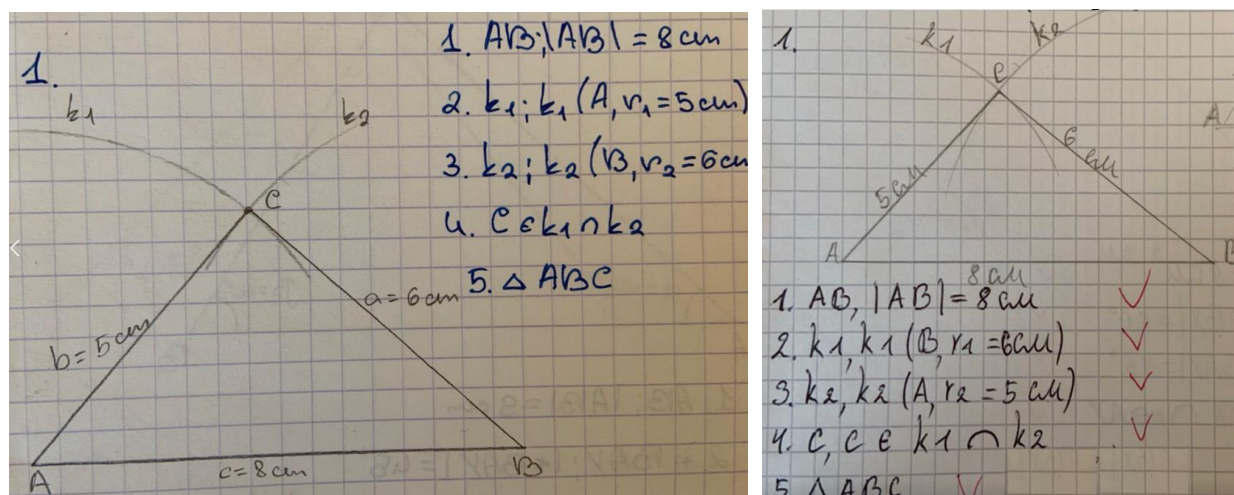 1.
k1
k2
C
b = 5 cm
a = 6 cm
A
c = 8 cm
B
1. AB; |AB| = 8 cm
2. k1; k1 (A, r1 = 5 cm)
3. k2; k2 (B, r2 = 6 cm
4. C ∈ k1 ∩ k2
5. △ ABC
1.
k1
k2
C
5 см
6 см
A
8 см
B
1. AB, |AB| = 8 см
2. k1, k1 (B, r1 = 6 см)
3. k2, k2 (A, r2 = 5 см)
4. C, C ∈ k1 ∩ k2
5. △ ABC